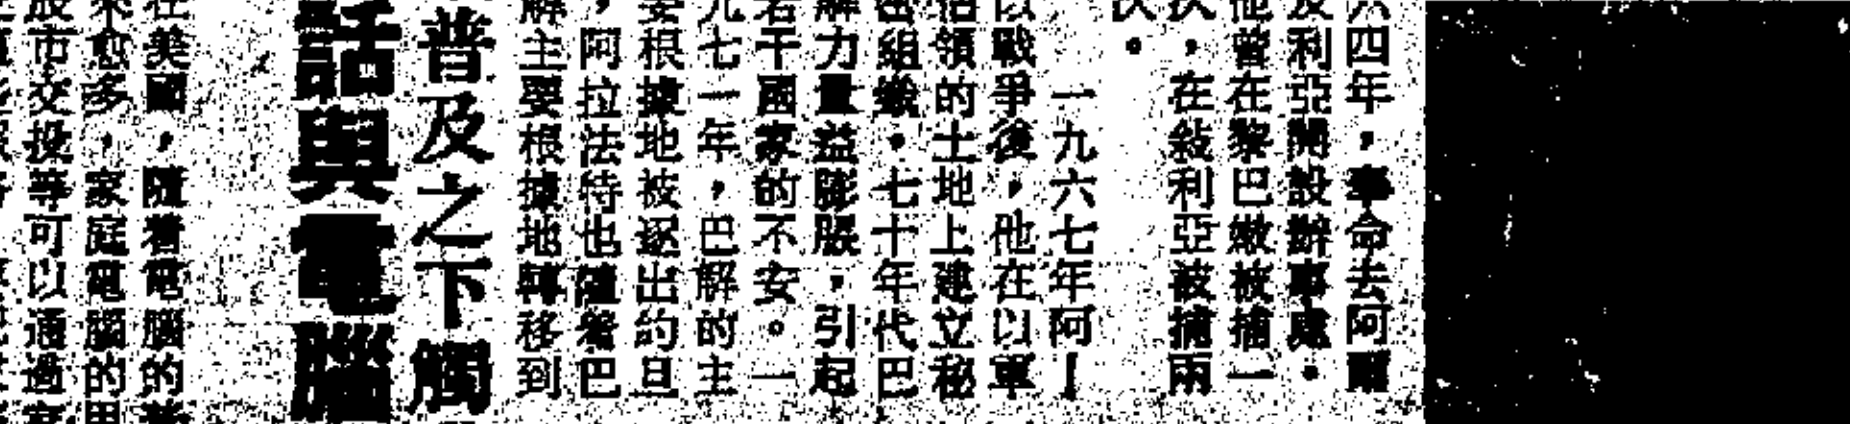 六四年,奉命去阿爾
及利亞開設辦事處。
他曾在黎巴嫩被捕一
次,在敍利亞被捕兩
次。
一九六七年阿—
以戰爭後,他在以軍
佔領的土地上建立秘
密組織。七十年代巴
解力量益膨脹,引起
若干國家的不安。一
九七一年,巴解的主
要根據地被逐出約旦
,阿拉法特也隨着巴
解主要根據地轉移到
普及之下觸
話與電腦
在美國,隨着電腦的
來愈多,家庭電腦的用
股市交投等可以通過